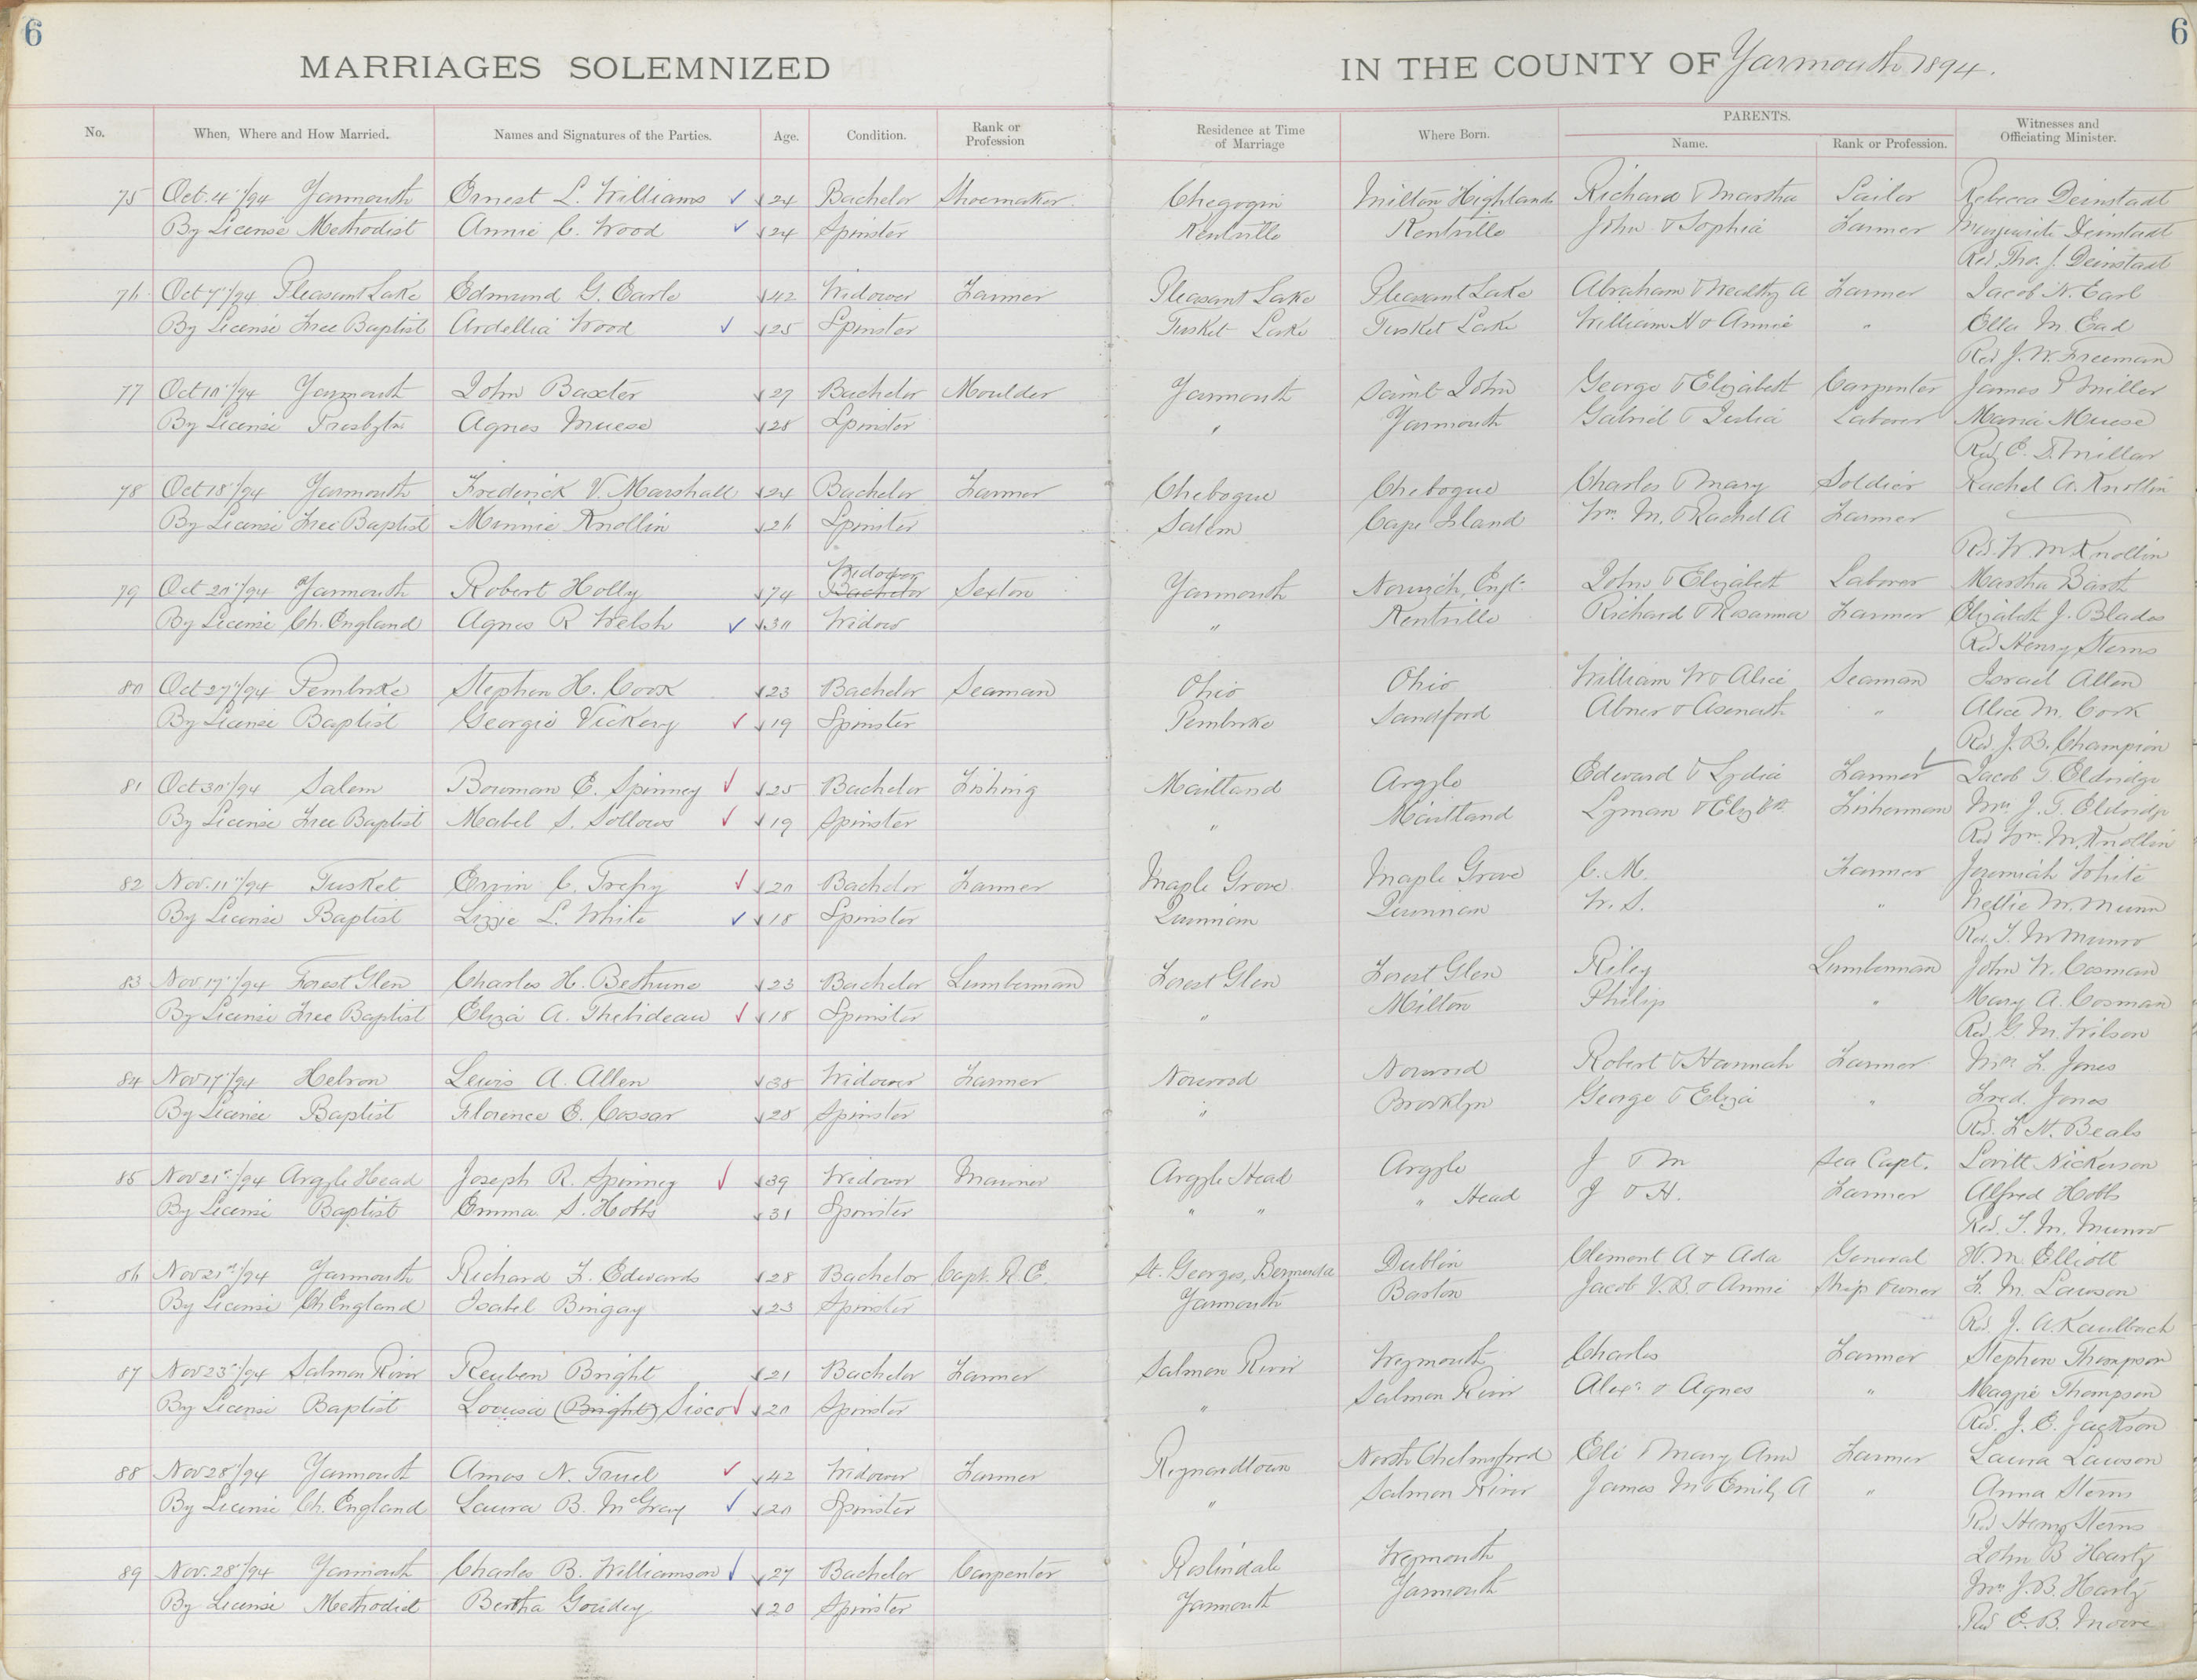 6
6
MARRIAGES SOLEMNIZED IN THE COUNTY OF Yarmouth 1894.
No. When, Where and How Married. Names and Signatures of the Parties. Age. Condition. Rank or Profession Residence at Time of Marriage Where Born. PARENTS. Name. Rank or Profession. Witnesses and Officiating Minister.
75 Oct. 4"/94 Yarmouth Ernest L. Williams 24 Bachelor Shoemaker Chegogin Milton Highlands Richard & Martha Sailor Rebecca Deinstadt
By License Methodist Annie C. Wood 24 Spinster Kentville Kentville John & Sophia Farmer Deinstadt
Rev. Tho. J. Deinstadt
76 Oct 7"/94 Pleasant Lake Edmund G. Earle 42 Widower Farmer Pleasant Lake Pleasant Lake Abraham & A Farmer Jacob N. Earl
By License Free Baptist Ardellia Wood 25 Spinster Tusket Lake Tusket Lake William H & Annie " Ella M.
Rev J. W. Freeman
77 Oct 10"/94 Yarmouth John Baxter 27 Bachelor Moulder Yarmouth Saint John George & Elizabeth Carpenter James P Miller
By License Presbytn Agnes Muese 28 Spinster " Yarmouth Gabriel & Julia Laborer Maria Muese
Rev E. D. Millar
78 Oct 18"/94 Yarmouth Frederick V. Marshall 24 Bachelor Farmer Chebogue Chebogue Charles & Mary Soldier Rachel A. Knollin
By License Free Baptist Minnie Knollin 26 Spinster Salem Cape Island Wm. M. & Rachel A Farmer
Rev. W. M. Knollin
79 Oct 20"/94 Yarmouth Robert Holly 74 Widower Bachelor Sexton Yarmouth Norwich, Engl. John & Elizabeth Laborer Martha Barth
By License Ch. England Agnes R Welsh 30 Widow " Kentville Richard & Rosanna Farmer Elizabeth J. Blades
Rev Henry Sterns
80 Oct 27"/94 Pembroke Stephen H. Cook 23 Bachelor Seaman Ohio Ohio William W & Alice Seaman Israel Allen
By License Baptist Georgie Vickery 19 Spinster Pembroke Sandford Abner & Asenath " Alice M. Cook
Rev. J. B. Champion
81 Oct 30"/94 Salem Bowman E. Spinney 25 Bachelor Fishing Maitland Argyle Edward & Lydia Farmer Jacob T. Eldridge
By License Free Baptist Mabel S. Sollows 19 Spinster " Maitland Lyman & Elizth Fisherman Mrs J. T. Eldridge
Rev Wm. M. Knollin
82 Nov. 11"/94 Tusket Ervin C. Trefry 20 Bachelor Farmer Maple Grove Maple Grove C. M. Farmer Jeremiah White
By License Baptist Lizzie L. White 18 Spinster Quinnan Quinnan W. S. " Nellie M. Munro
Rev. T. M Munro
83 Nov 17"/94 Forest Glen Charles H. Bethune 23 Bachelor Lumberman Forest Glen Forest Glen Riley Lumberman John W. Cosman
By License Free Baptist Eliza A. Thibideau 18 Spinster " Milton Philip " Mary A. Cosman
Rev. G. M. Wilson
84 Nov 17"/94 Hebron Lewis A. Allen 38 Widower Farmer Norwood Norwood Robert & Hannah Farmer Mrs F. Jones
By License Baptist Florence E. Cossar 28 Spinster " Brooklyn George & Eliza " Fred. Jones
Rev. F. H. Beals
85 Nov 21st/94 Argyle Head Joseph R. Spinney 39 Widower Mariner Argyle Head Argyle J & M Sea Capt. Lovitt Nickerson
By License Baptist Emma S. Hobbs 31 Spinster " " " Head J & H. Farmer Alfred Hobbs
Rev. T. M. Munro
86 Nov 21st/94 Yarmouth Richard F. Edwards 28 Bachelor Capt. R.E. St. Georges, Bermuda Dublin Clement A & Ada General H. M. Elliott
By License Ch England Isabel Bingay 23 Spinster Yarmouth Barton Jacob V. B. & Annie Ship Owner F. M. Lawson
Rev. J. A. Kaulbach
87 Nov 23"/94 Salmon River Reuben Bright 21 Bachelor Farmer Salmon River Weymouth Charles Farmer Stephen Thompson
By License Baptist Louisa (Bright) Sisco 20 Spinster " Salmon River Alexr & Agnes " Maggie Thompson
Rev. J. E. Jackson
88 Nov 28"/94 Yarmouth Amos N. Truel 42 Widower Farmer Reynardtown North Chelmsford Eli & Mary Ann Farmer Laura Lawson
By License Ch. England Laura B. McGray 20 Spinster " Salmon River James M & Emily A " Anna Sterns
Rev Henry Sterns
89 Nov. 28"/94 Yarmouth Charles B. Williamson 27 Bachelor Carpenter Roslindale Weymouth John B Harty
By License Methodist Bertha Goudey 20 Spinster Yarmouth Yarmouth Mrs J. B. Harty
Rev E. B. Moore